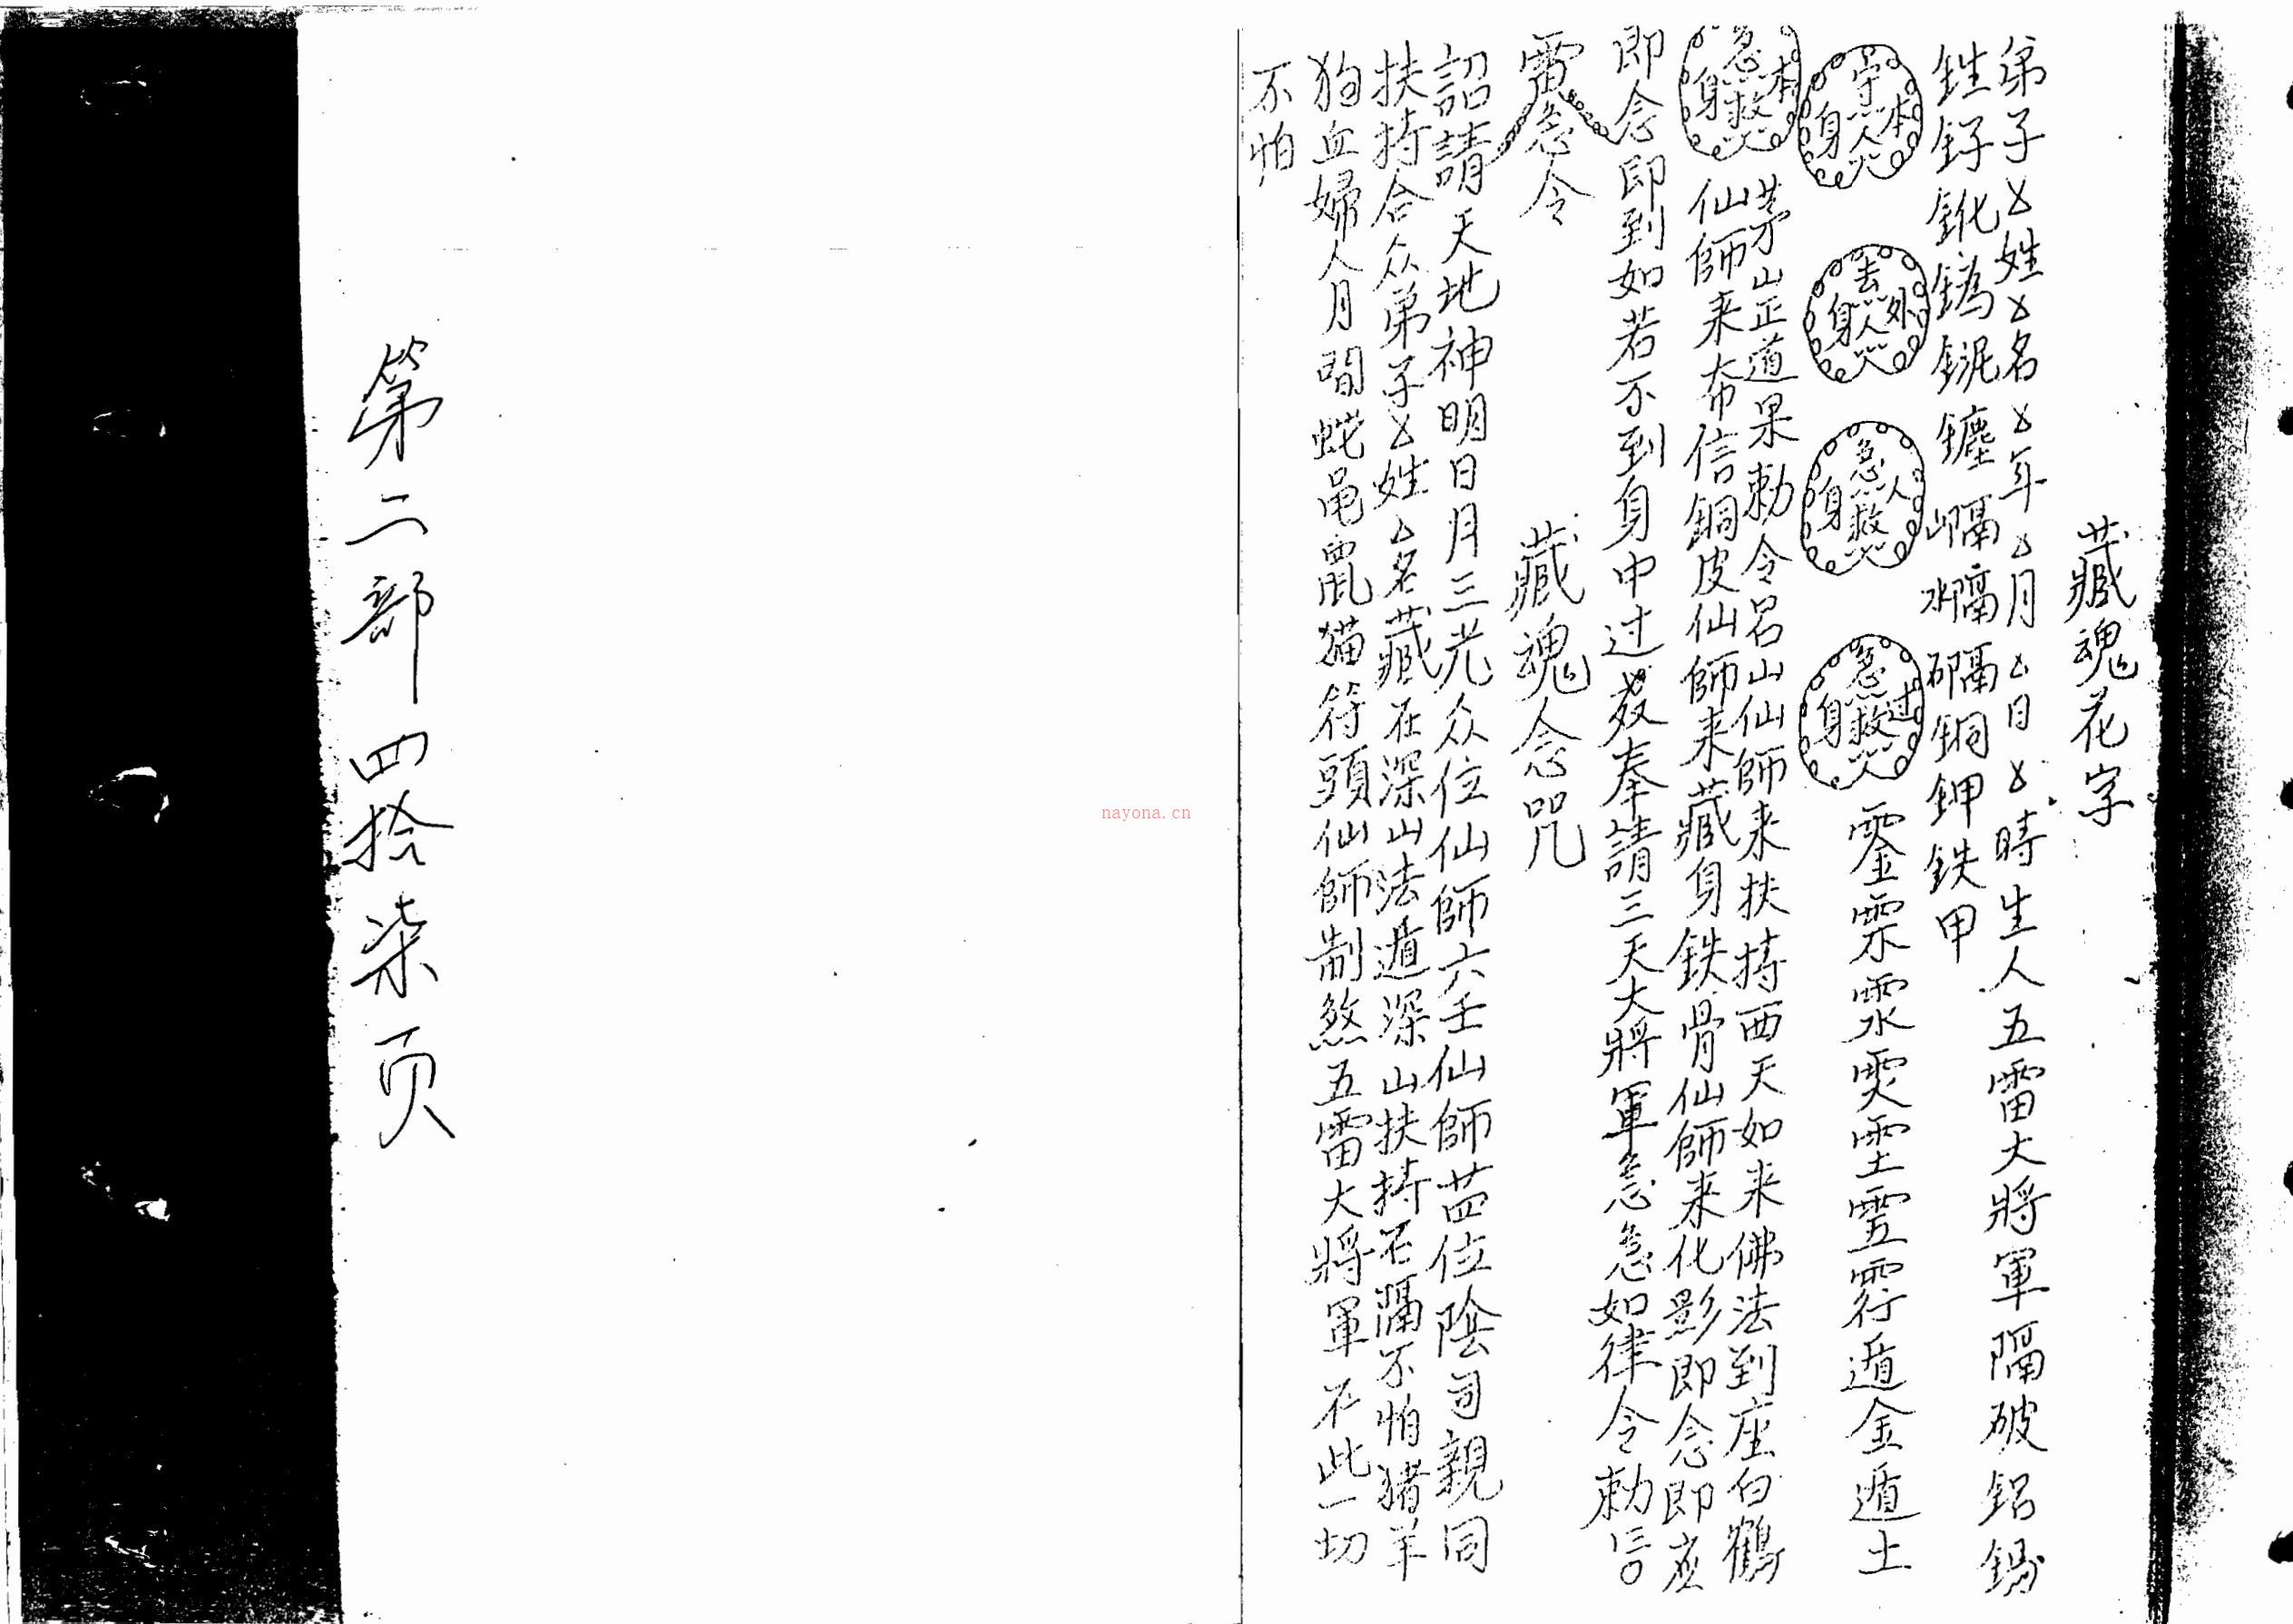 藏魂花字
弟子姓名年月日時生人五雷大將軍隔破鋁錫
銅鉀鉄甲
守本身人
去外身人
急救人身
急救过身人
遁金遁土
急救本身
茅山正道果勅令呂山仙師来扶持西天如来佛法到座白鶴
仙師来布信銅皮仙師来藏身鉄骨仙師来化影即念即应
即念即到如若不到身中过奉請三天大將軍急急如律令勅
急令
藏魂念咒
詔請天地神明日月三光众位仙師六壬仙師位陰司親同
扶持合众弟子姓名藏在深山法遁深山扶持石隔不怕猪羊
狗血婦人月間蛇黽鼠猫符頭仙師制煞五雷大將軍不此一切
不怕
第二部四拾柒页
nayona.cn